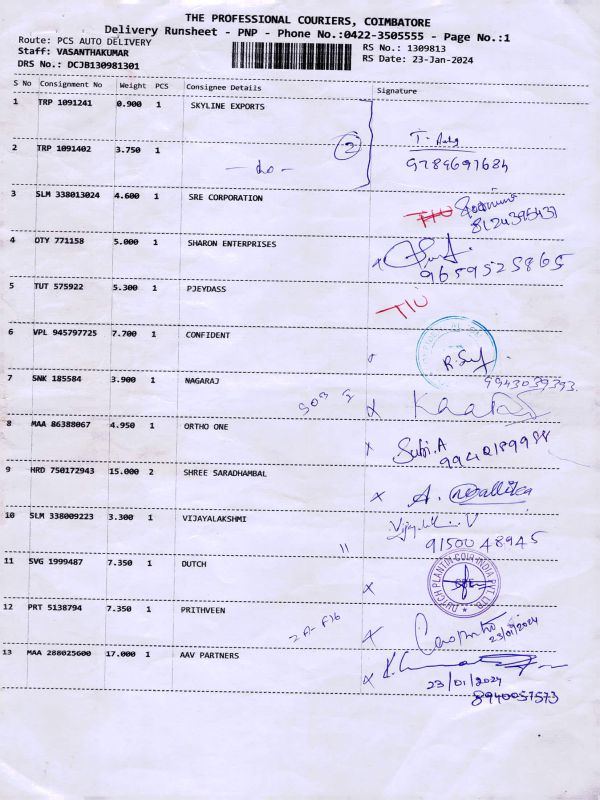 THE PROFESSIONAL COURIERS, COIMBATORE
Delivery Runsheet - PNP - Phone No.:0422-3505555 - Page No.:1
Route: PCS AUTO DELIVERY
RS No.: 1309813
Staff: VASANTHAKUMAR
RS Date: 23-Jan-2024
DRS No.: DCJB130981301
S No Consignment No Weight PCS Consignee Details Signature
1 TRP 1091241 0.900 1 SKYLINE EXPORTS
2 TRP 1091402 3.750 1 - do - 2 T.
9789697684
3 SLM 338013024 4.600 1 SRE CORPORATION TIU
8124395437
4 OTY 771158 5.000 1 SHARON ENTERPRISES
9659525865
5 TUT 575922 5.300 1 PJEYDASS TIU
6 VPL 945797725 7.700 1 CONFIDENT
9943039393.
7 SNK 185584 3.900 1 NAGARAJ X
8 MAA 86388067 4.950 1 ORTHO ONE X Subi.A
9942189988
9 HRD 750172943 15.000 2 SHREE SARADHAMBAL X A.
10 SLM 338009223 3.300 1 VIJAYALAKSHMI V
9150048945
11 SVG 1999487 7.350 1 DUTCH X
DUTCH PLANTIN COIR INDIA PVT. LTD.
12 PRT 5138794 7.350 1 PRITHVEEN X
23/01/2024
13 MAA 288025600 17.000 1 AAV PARTNERS X
23/01/2024
8940057573